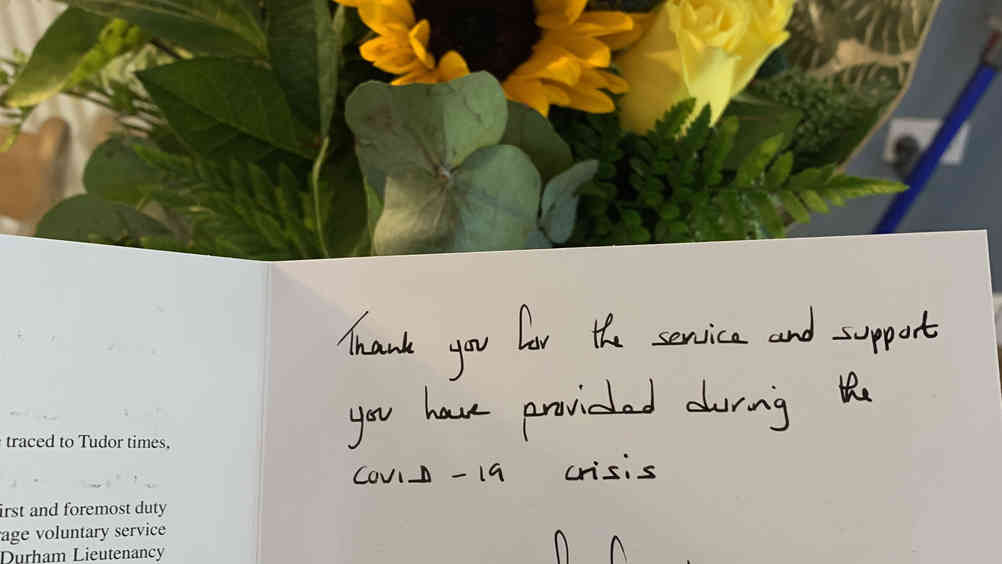 traced to Tudor times,
first and foremost duty
voluntary service
Durham Lieutenancy
Thank you for the service and support
you have provided during the
COVID-19 crisis